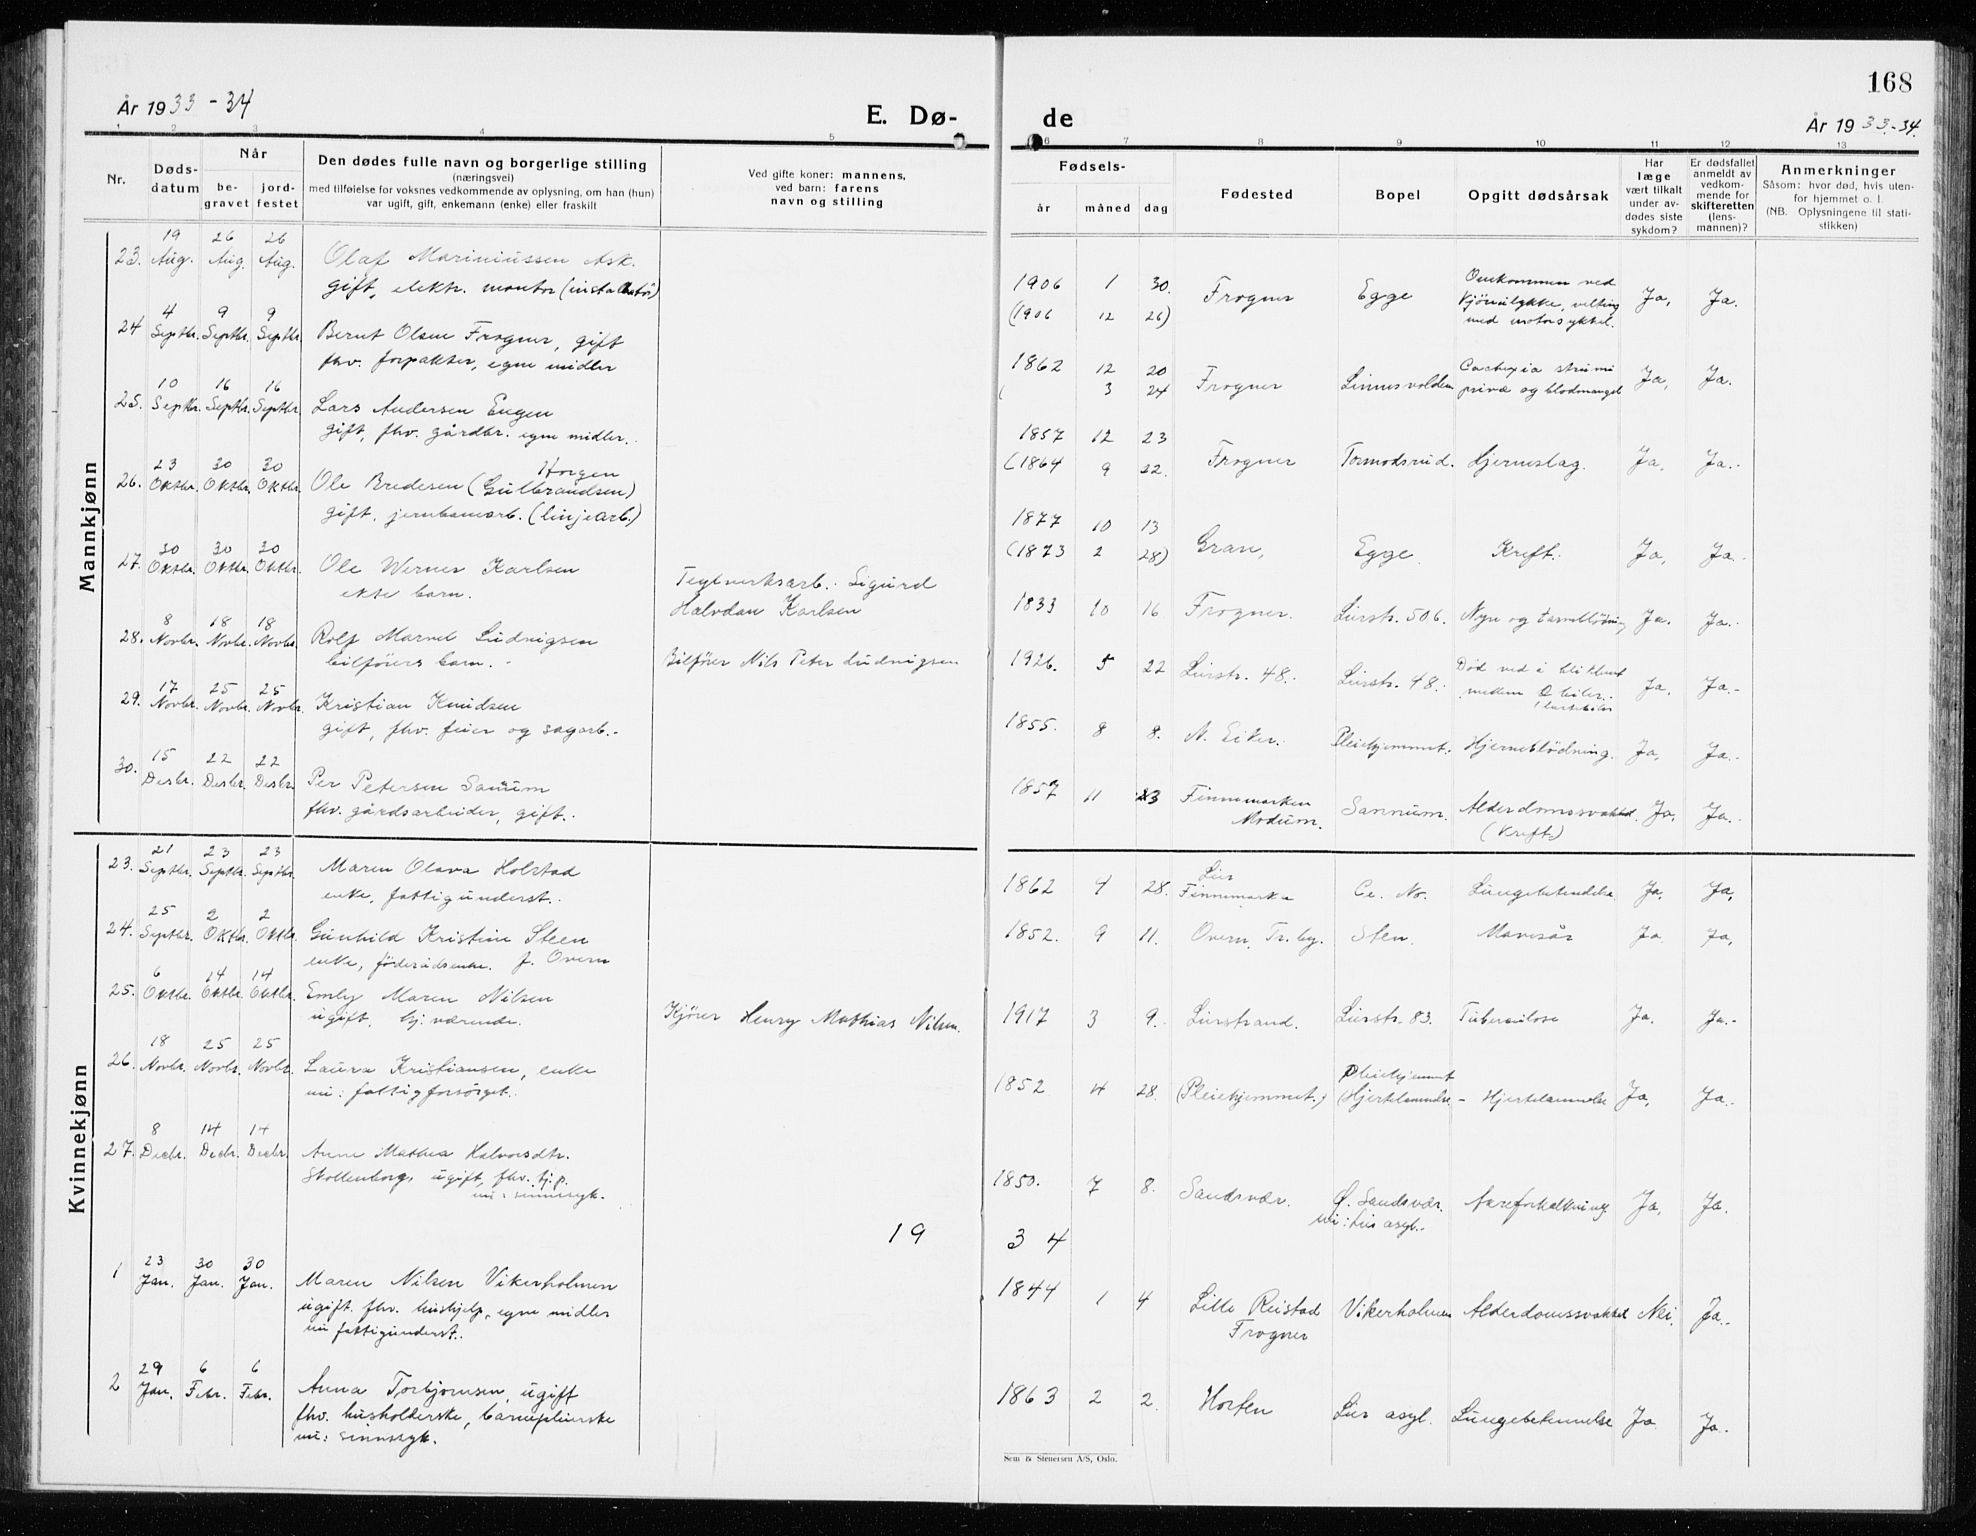 168
År 1933-34
E. Dø-
de
År 1933-34.
1 2 3 4 5 6 7 8 9 10 11 12 13
Nr.
Døds-
datum
Når
be-
gravet
jord-
festet
Den dødes fulle navn og borgerlige stilling
(næringsvei)
med tilføielse for voksnes vedkommende av oplysning, om han (hun)
var ugift, gift, enkemann (enke) eller fraskilt
Ved gifte koner: mannens,
ved barn: farens
navn og stilling
Fødsels-
år måned dag
Fødested
Bopel
Opgitt dødsårsak
Har
læge
vært tilkalt
under av-
dødes siste
sykdom?
Er dødsfallet
anmeldt av
vedkom-
mende for
skifteretten
(lens-
mannen)?
Anmerkninger
Såsom: hvor død, hvis uten-
for hjemmet o. l.
(NB. Oplysningene til stati-
stikken)
Mannkjønn
19 26 26
23. Aug. Aug. Aug. Olaf Mariniussen Ask.
gift, elektr. montør
1906 1 30. Frogner Egge Omkommen ved
(1906 12 26) velting Ja, Ja.
med motorsykkel.
4 9 9
24 Septbr. Septbr. Septbr. Bernt Olsen Frogner, gift
fhv. forpakter, egne midler
1862 12 20 Cachexia strumi
3 24 Frogner Linnesvolden privæ og blodmangel Ja, Ja.
10 16 16
25. Septbr. Septbr. Septbr. Lars Andersen Engen
gift, fhv. gårdbr. egne midler.
1857 12 23
(1864 9 22. Frogner Tormodsrud. Hjerneslag. Ja, Ja.
23 30 30 Horgen
26. Oktbr. Oktbr. Oktbr. Ole Bredesen (Gulbrandsen)
gift, jernbanearb. (linjearb.)
1877 10 13
(1873 2 28) Gran, Egge. Kreft. Ja, Ja.
30 30 30
27. Oktbr. Oktbr. Oktbr. Ole Werner Karlsen
ekte barn.
Teglverksarb. Sigurd
Halvdan Karlsen
1933 10 16 Frogner. Lierstr. 506. Nyre og tarmblødning Ja. Ja.
8 18 18
28. Novbr. Novbr. Novbr. Rolf Marvel Ludvigsen
bilførers barn.
Bilfører Nils Peter Ludvigsen
1926. 5 22 Lierstr. 48. Lierstr. 48. Død ved å bli klemt
mellem 2 biler. Ja. Ja.
17 25 25
29. Novbr. Novbr. Novbr. Kristian Knudsen
gift, fhv. feier og sagarb.
1855. 8 8. N. Eiker. Pleiehjemmet. Hjerneblödning. Ja, Ja.
15 22 22
30. Desbr. Desbr. Desbr. Per Petersen Sanum
fhv. gårdsarbeider, gift.
1857 11 23 Finnemarken
Modum. Sannum. Alderdomssvakhet Ja, Ja.
(Kreft)
Kvinnekjønn
21 23 23
23. Septbr. Septbr. Septbr. Maren Olava Holstad
enke, fattigunderst.
1862 4 28. Lier
Finnemarka Ce. No. Lungebetendelse Ja, Ja,
25 2 2
24. Septbr. Oktbr. Oktbr. Gunhild Kristine Steen
enke, föderådsenke. f. Overn
1852. 9 11. Overn, Tr. by. Sten. Mavesår Ja. Ja,
6 14 14
25. Oktbr. Oktbr. Oktbr. Emly Maren Nilsen
ugift, hj. værende.
Kjører Henry Mathias Nilsen.
1917 3 9. Lierstrand. Lierstr. 83. Tuberculose Ja. Ja.
18 25 25
26. Novbr. Novbr. Novbr. Laura Kristiansen, enke
nu: fattigforsørget.
1852 4 28. (Pleiehjemmet.) Pleiehjemmet
(Hjertelammelse - Hjertelammelse Ja, Ja.
8 14 14
27. Decbr. Decbr. Decbr. Anne Mathea Halvorsdtr.
Stollenborg, ugift, fhv. tj.p.
nu: sinnssyk.
1850. 7 8. Sandsvær. Ø. Sandsvær.
nu: Lier asyl. Åreforkalkning Ja, Ja.
19 34
23 30 30
1 Jan. Jan. Jan. Maren Nilsen Vikerholmen
ugift. fhv. hushjelp, egne midler
nu fattigunderst.
1844 1 4 Lille Reistad
Frogner Vikerholmen Alderdomssvakhet Nei. Ja.
29 6 6
2 Jan. Febr. Febr. Anna Torbjørnsen, ugift
fhv. husholderske, barnepleierske
nu: sinnssyk.
1863 2 2. Horten Lier asyl. Lungebetennelse Ja. Ja.
Sem & Stenersen A/S, Oslo.